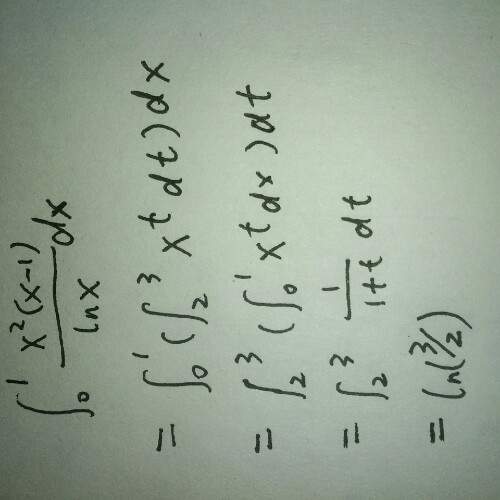 ∫₀¹ x²(x-1)/lnx dx
= ∫₀¹ (∫₂³ xᵗ dt) dx
= ∫₂³ (∫₀¹ xᵗ dx) dt
= ∫₂³ 1/(1+t) dt
= ln(3/2)